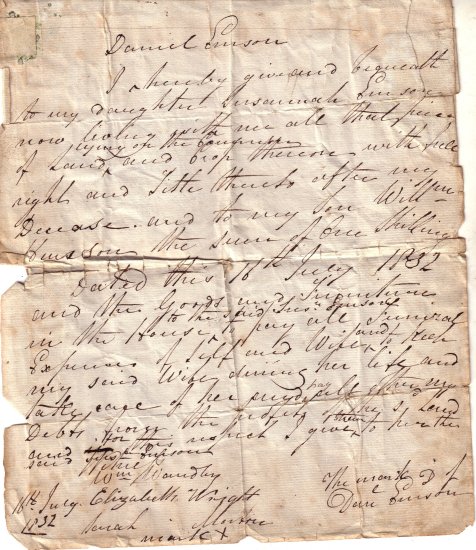 Daniel Emson
I hereby give and bequeath
to my daughter Susannah Emson
now living with me all that piece
lying on the
of Land, and crop thereon with full
right and Title thereto after my
Decease. and to my Son William
Emson the sum of One Shilling
Dated this 16th July 1832
and the Goods and Furniture
to the said Sus: Emson
in the House, to pay all Funeral
Expenses of self and Wife, and to keep
my said Wife during her life and
take care of her and pay all my
Debts from the profits of the sd Land
and for this respect I give them to her the
said
Wm Wandby
16th July. Elizabeth Wright
1832
Sarah Morton
mark X
The mark D of
Danl Emson